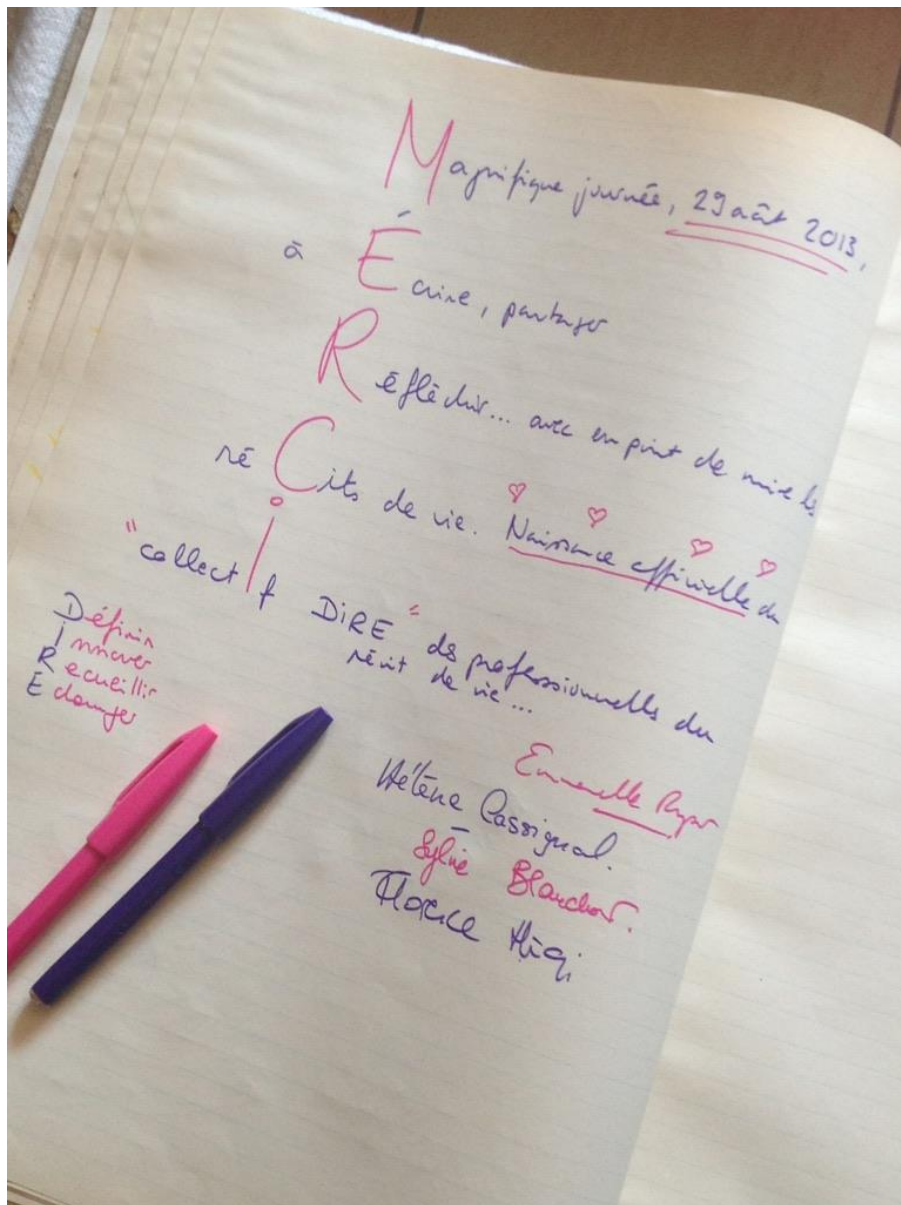 Magnifique journée, 29 août 2013,
à Écrire, partager
Réfléchir... avec en point de mire les
réCits de vie. Naissance officielle du
"collectif DiRE" des professionnelles du
récit de vie...
Définir
Innover
Recueillir
Échanger
Emmanuelle
Hélène Cassignal.
Sylvie Blanchet.
Florence